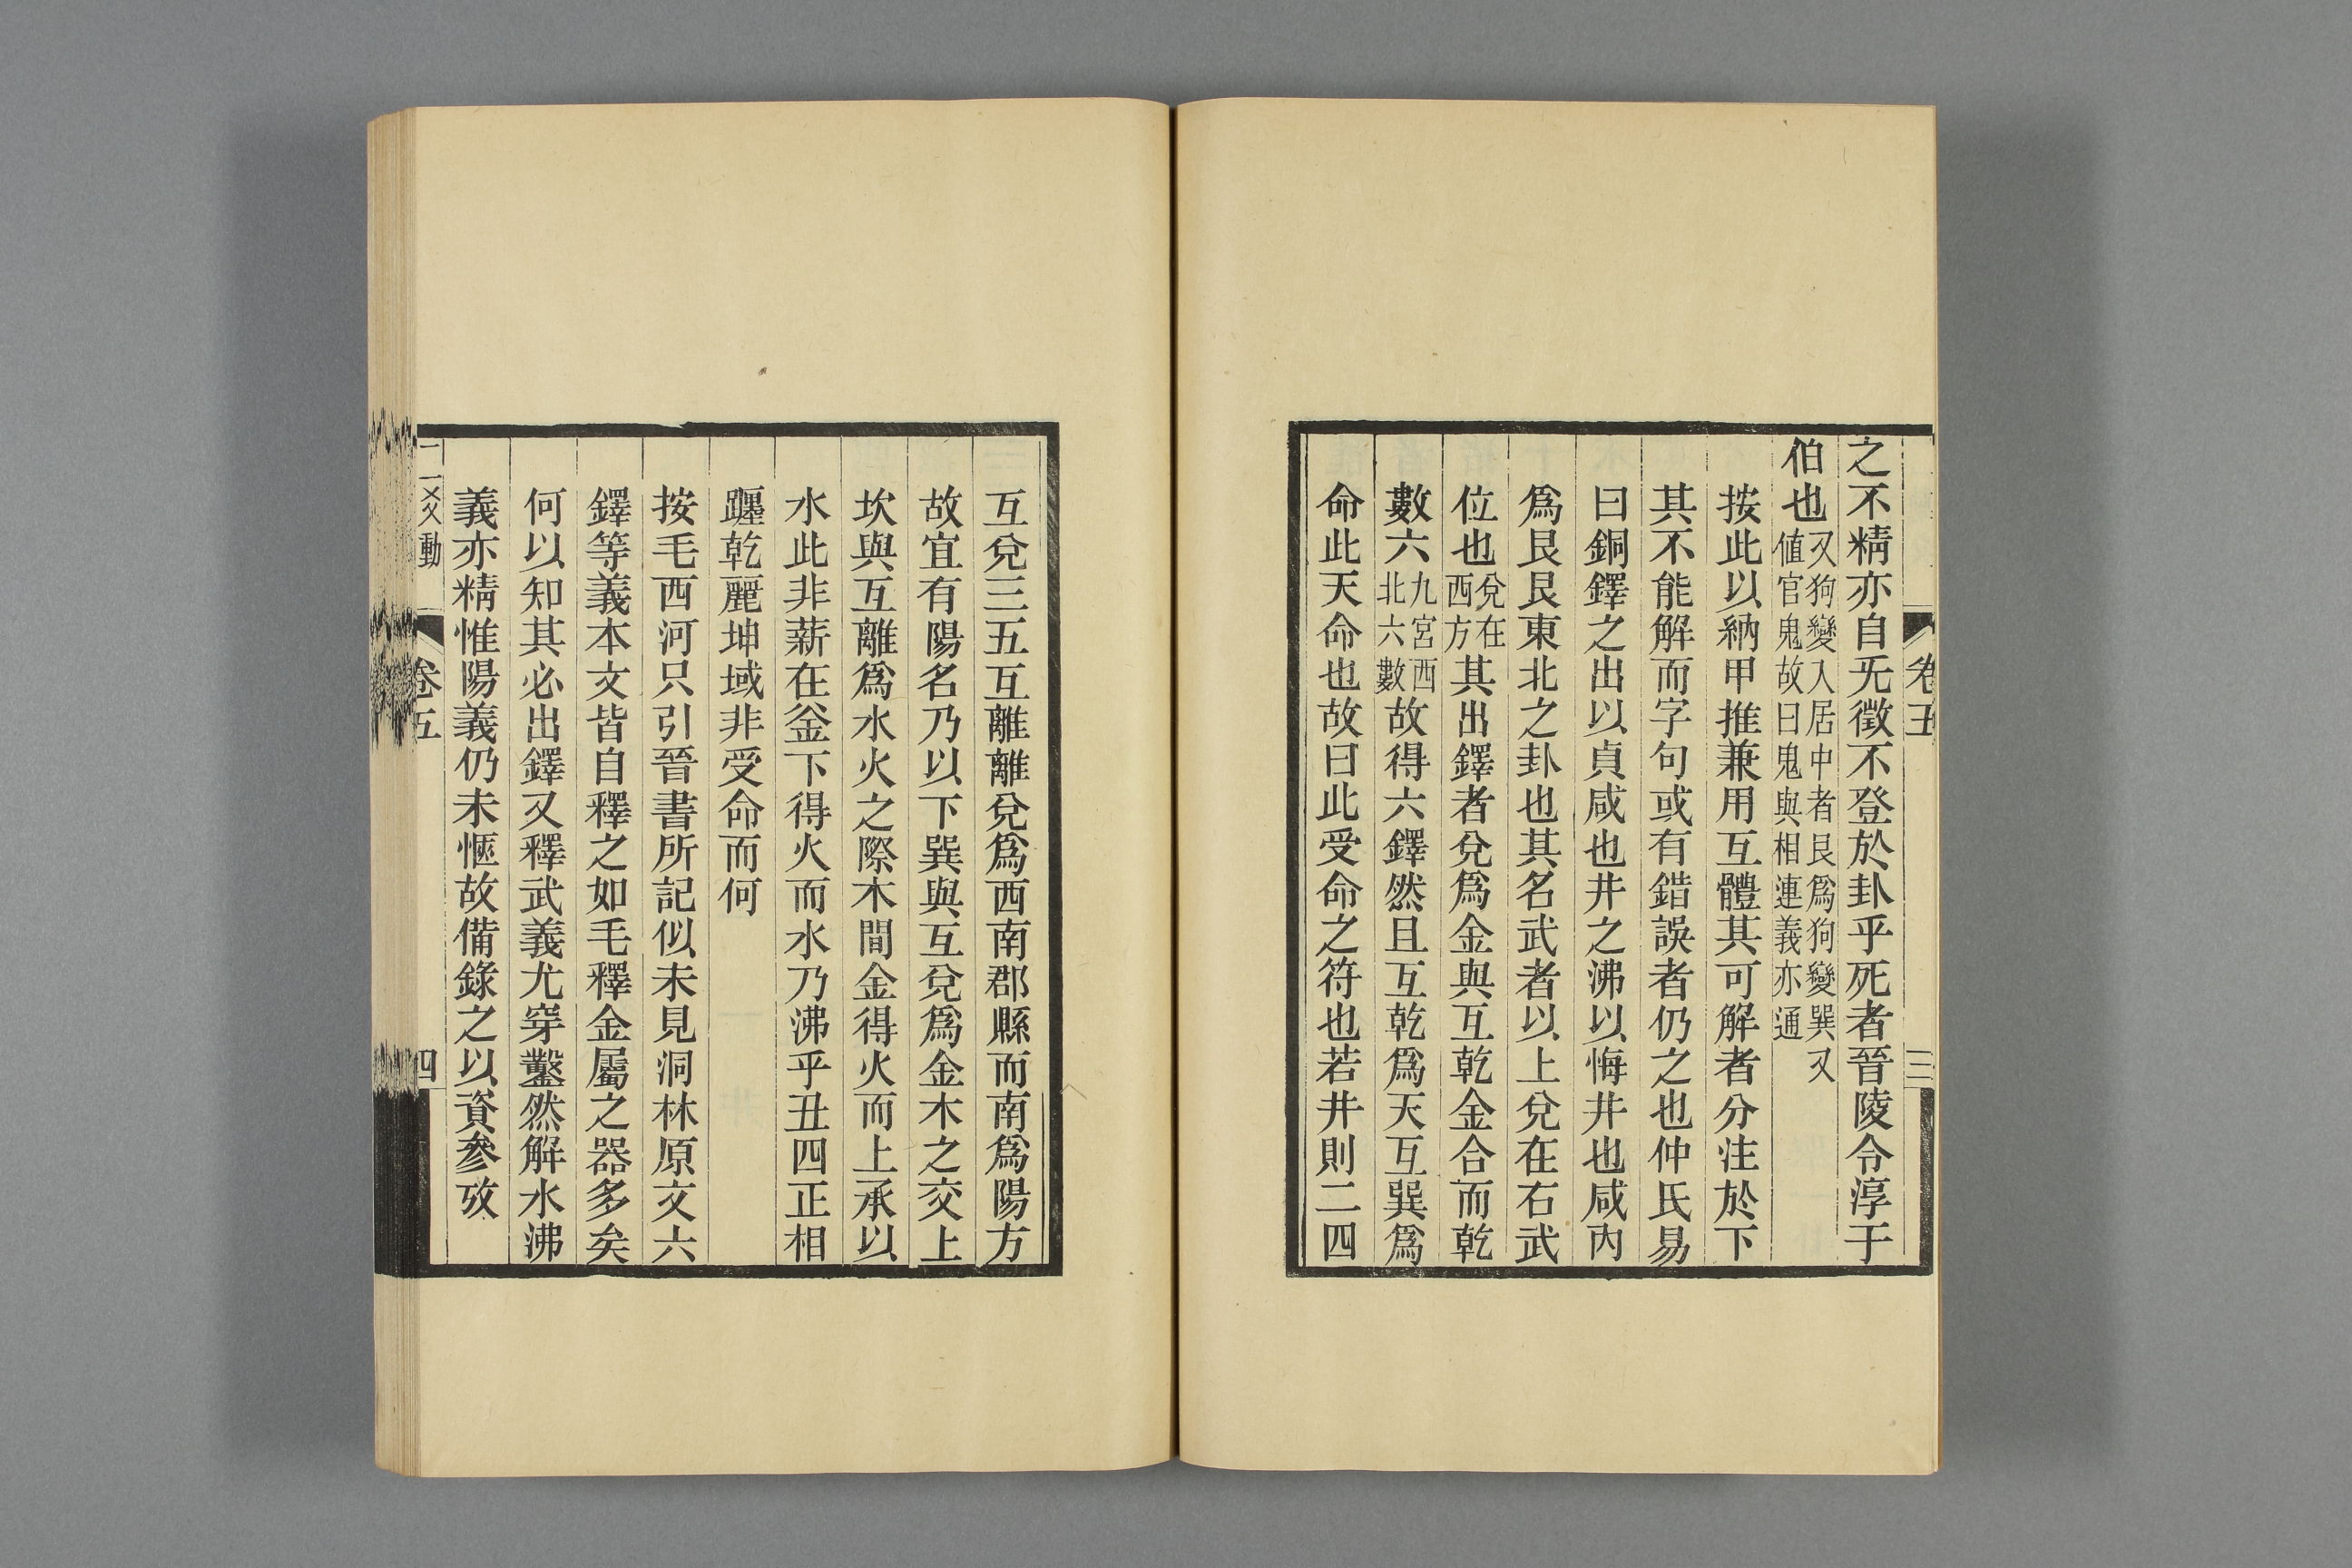 卷五
三
之不精亦自旡徵不登於卦乎死者晉陵令淳于
伯也又狗變入居中者艮爲狗變巽又值官鬼故曰鬼與相連義亦通
按此以納甲推兼用互體其可解者分注於下
其不能解而字句或有錯誤者仍之也仲氏易
曰銅鐸之出以貞咸也井之沸以悔井也咸內
爲艮艮東北之卦也其名武者以上兌在右武
位也兌在西方其出鐸者兌爲金與互乾金合而乾
數六九宮西北六數故得六鐸然且互乾爲天互巽爲
命此天命也故曰此受命之符也若井則二四
互兌三五互離離兌爲西南郡縣而南爲陽方
故宜有陽名乃以下巽與互兌爲金木之交上
坎與互離爲水火之際木間金得火而上承以
水此非薪在釜下得火而水乃沸乎丑四正相
躔乾麗坤域非受命而何
按毛西河只引晉書所記似未見洞林原文六
鐸等義本文皆自釋之如毛釋金屬之器多矣
何以知其必出鐸又釋武義尤穿鑿然解水沸
義亦精惟陽義仍未愜故備錄之以資參攷
二爻動
卷五
四